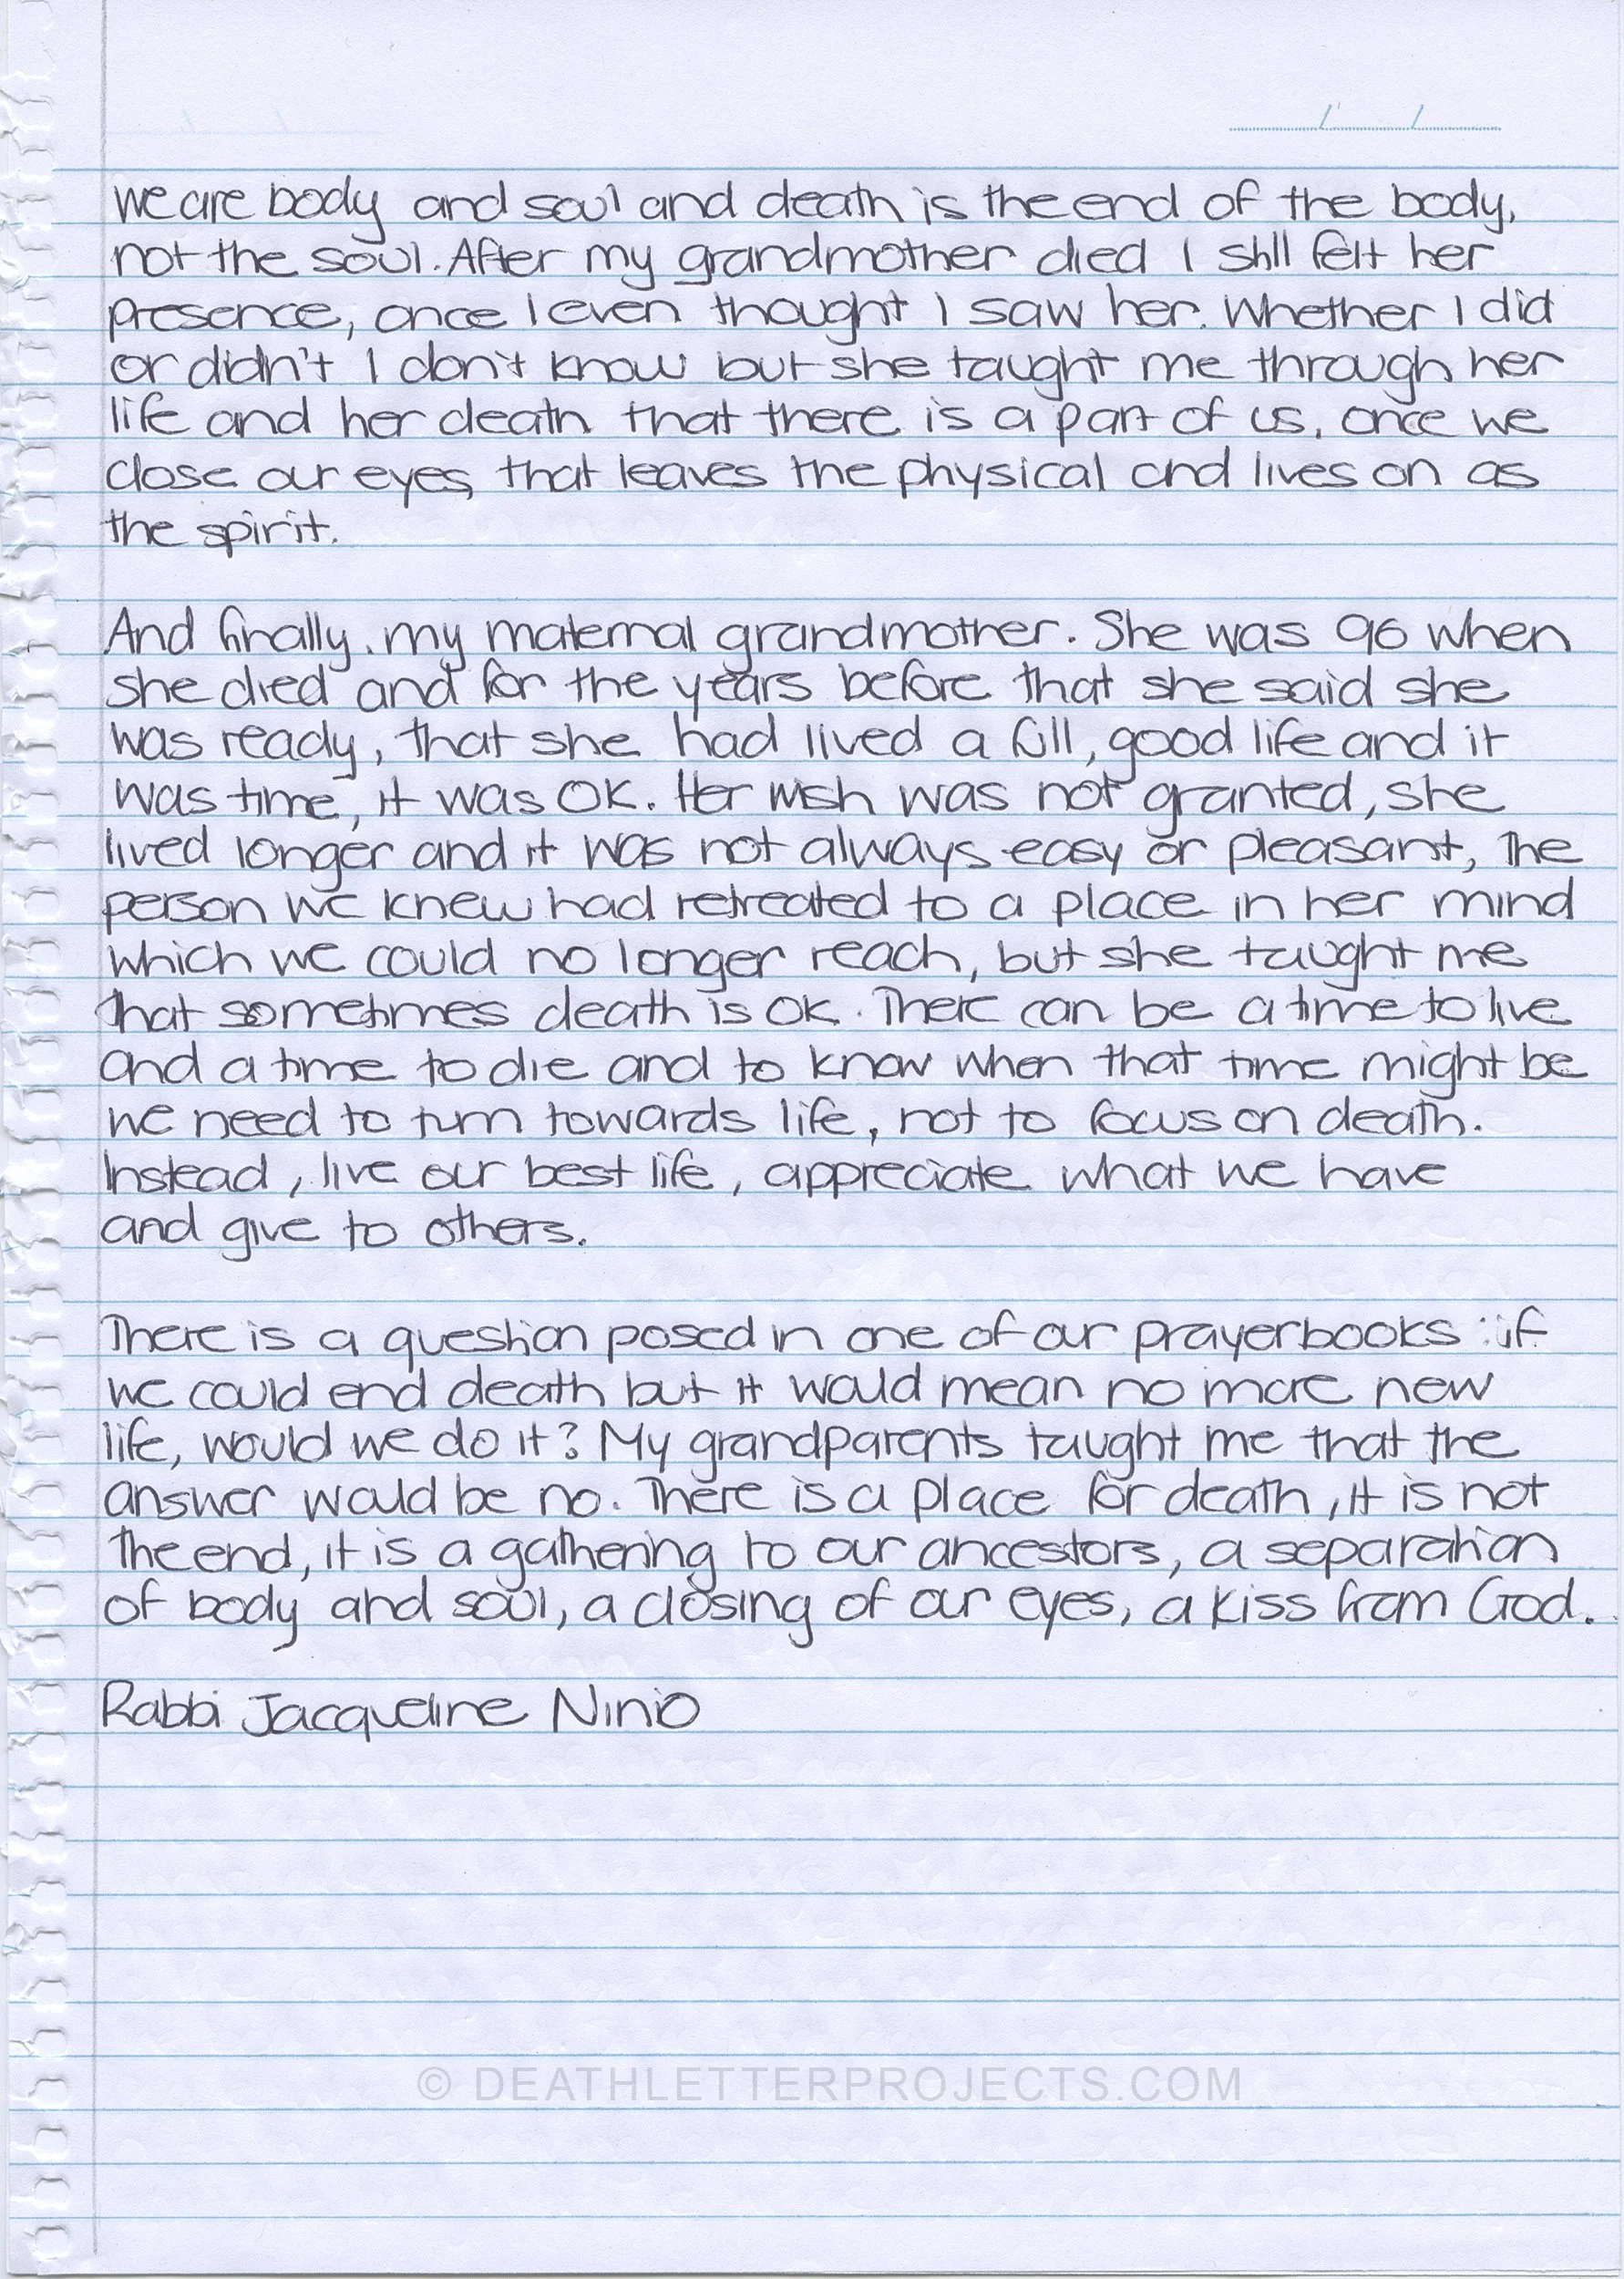 we are body and soul and death is the end of the body,
not the soul. After my grandmother died I still felt her
presence, once I even thought I saw her. Whether I did
or didn't I don't know but she taught me through her
life and her death that there is a part of us, once we
close our eyes, that leaves the physical and lives on as
the spirit.
And finally, my maternal grandmother. She was 96 when
she died and for the years before that she said she
was ready, that she had lived a full, good life and it
was time, it was OK. Her wish was not granted, she
lived longer and it was not always easy or pleasant, the
person we knew had retreated to a place in her mind
which we could no longer reach, but she taught me
that sometimes death is OK. There can be a time to live
and a time to die and to know when that time might be
we need to turn towards life, not to focus on death.
Instead, live our best life, appreciate what we have
and give to others.
There is a question posed in one of our prayerbooks : if
we could end death but it would mean no more new
life, would we do it? My grandparents taught me that the
answer would be no. There is a place for death, it is not
the end, it is a gathering to our ancestors, a separation
of body and soul, a closing of our eyes, a kiss from God.
Rabbi Jacqueline Ninio
© DEATHLETTERPROJECTS.COM